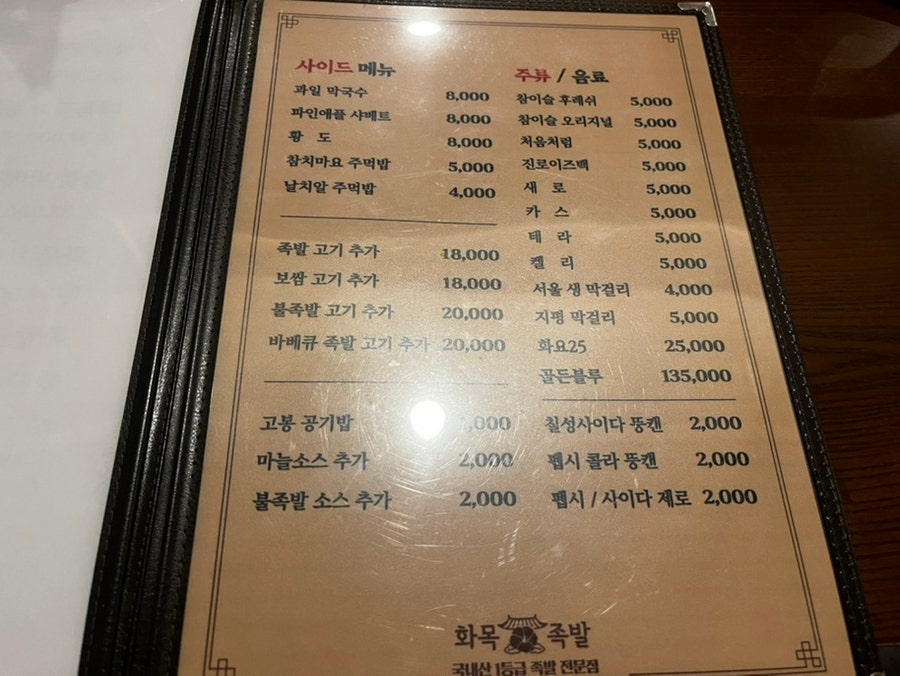 사이드 메뉴
과일 막국수 8,000
파인애플 샤베트 8,000
황 도 8,000
참치마요 주먹밥 5,000
날치알 주먹밥 4,000
족발 고기 추가 18,000
보쌈 고기 추가 18,000
불족발 고기 추가 20,000
바베큐 족발 고기 추가 20,000
고봉 공기밥 ,000
마늘소스 추가 2,000
불족발 소스 추가 2,000
주류 / 음료
참이슬 후레쉬 5,000
참이슬 오리지널 5,000
처음처럼 5,000
진로이즈백 5,000
새 로 5,000
카 스 5,000
테 라 5,000
켈 리 5,000
서울 생 막걸리 4,000
지평 막걸리 5,000
화요25 25,000
골든블루 135,000
칠성사이다 뚱캔 2,000
펩시 콜라 뚱캔 2,000
펩시 / 사이다 제로 2,000
화목 족발
국내산 1등급 족발 전문점